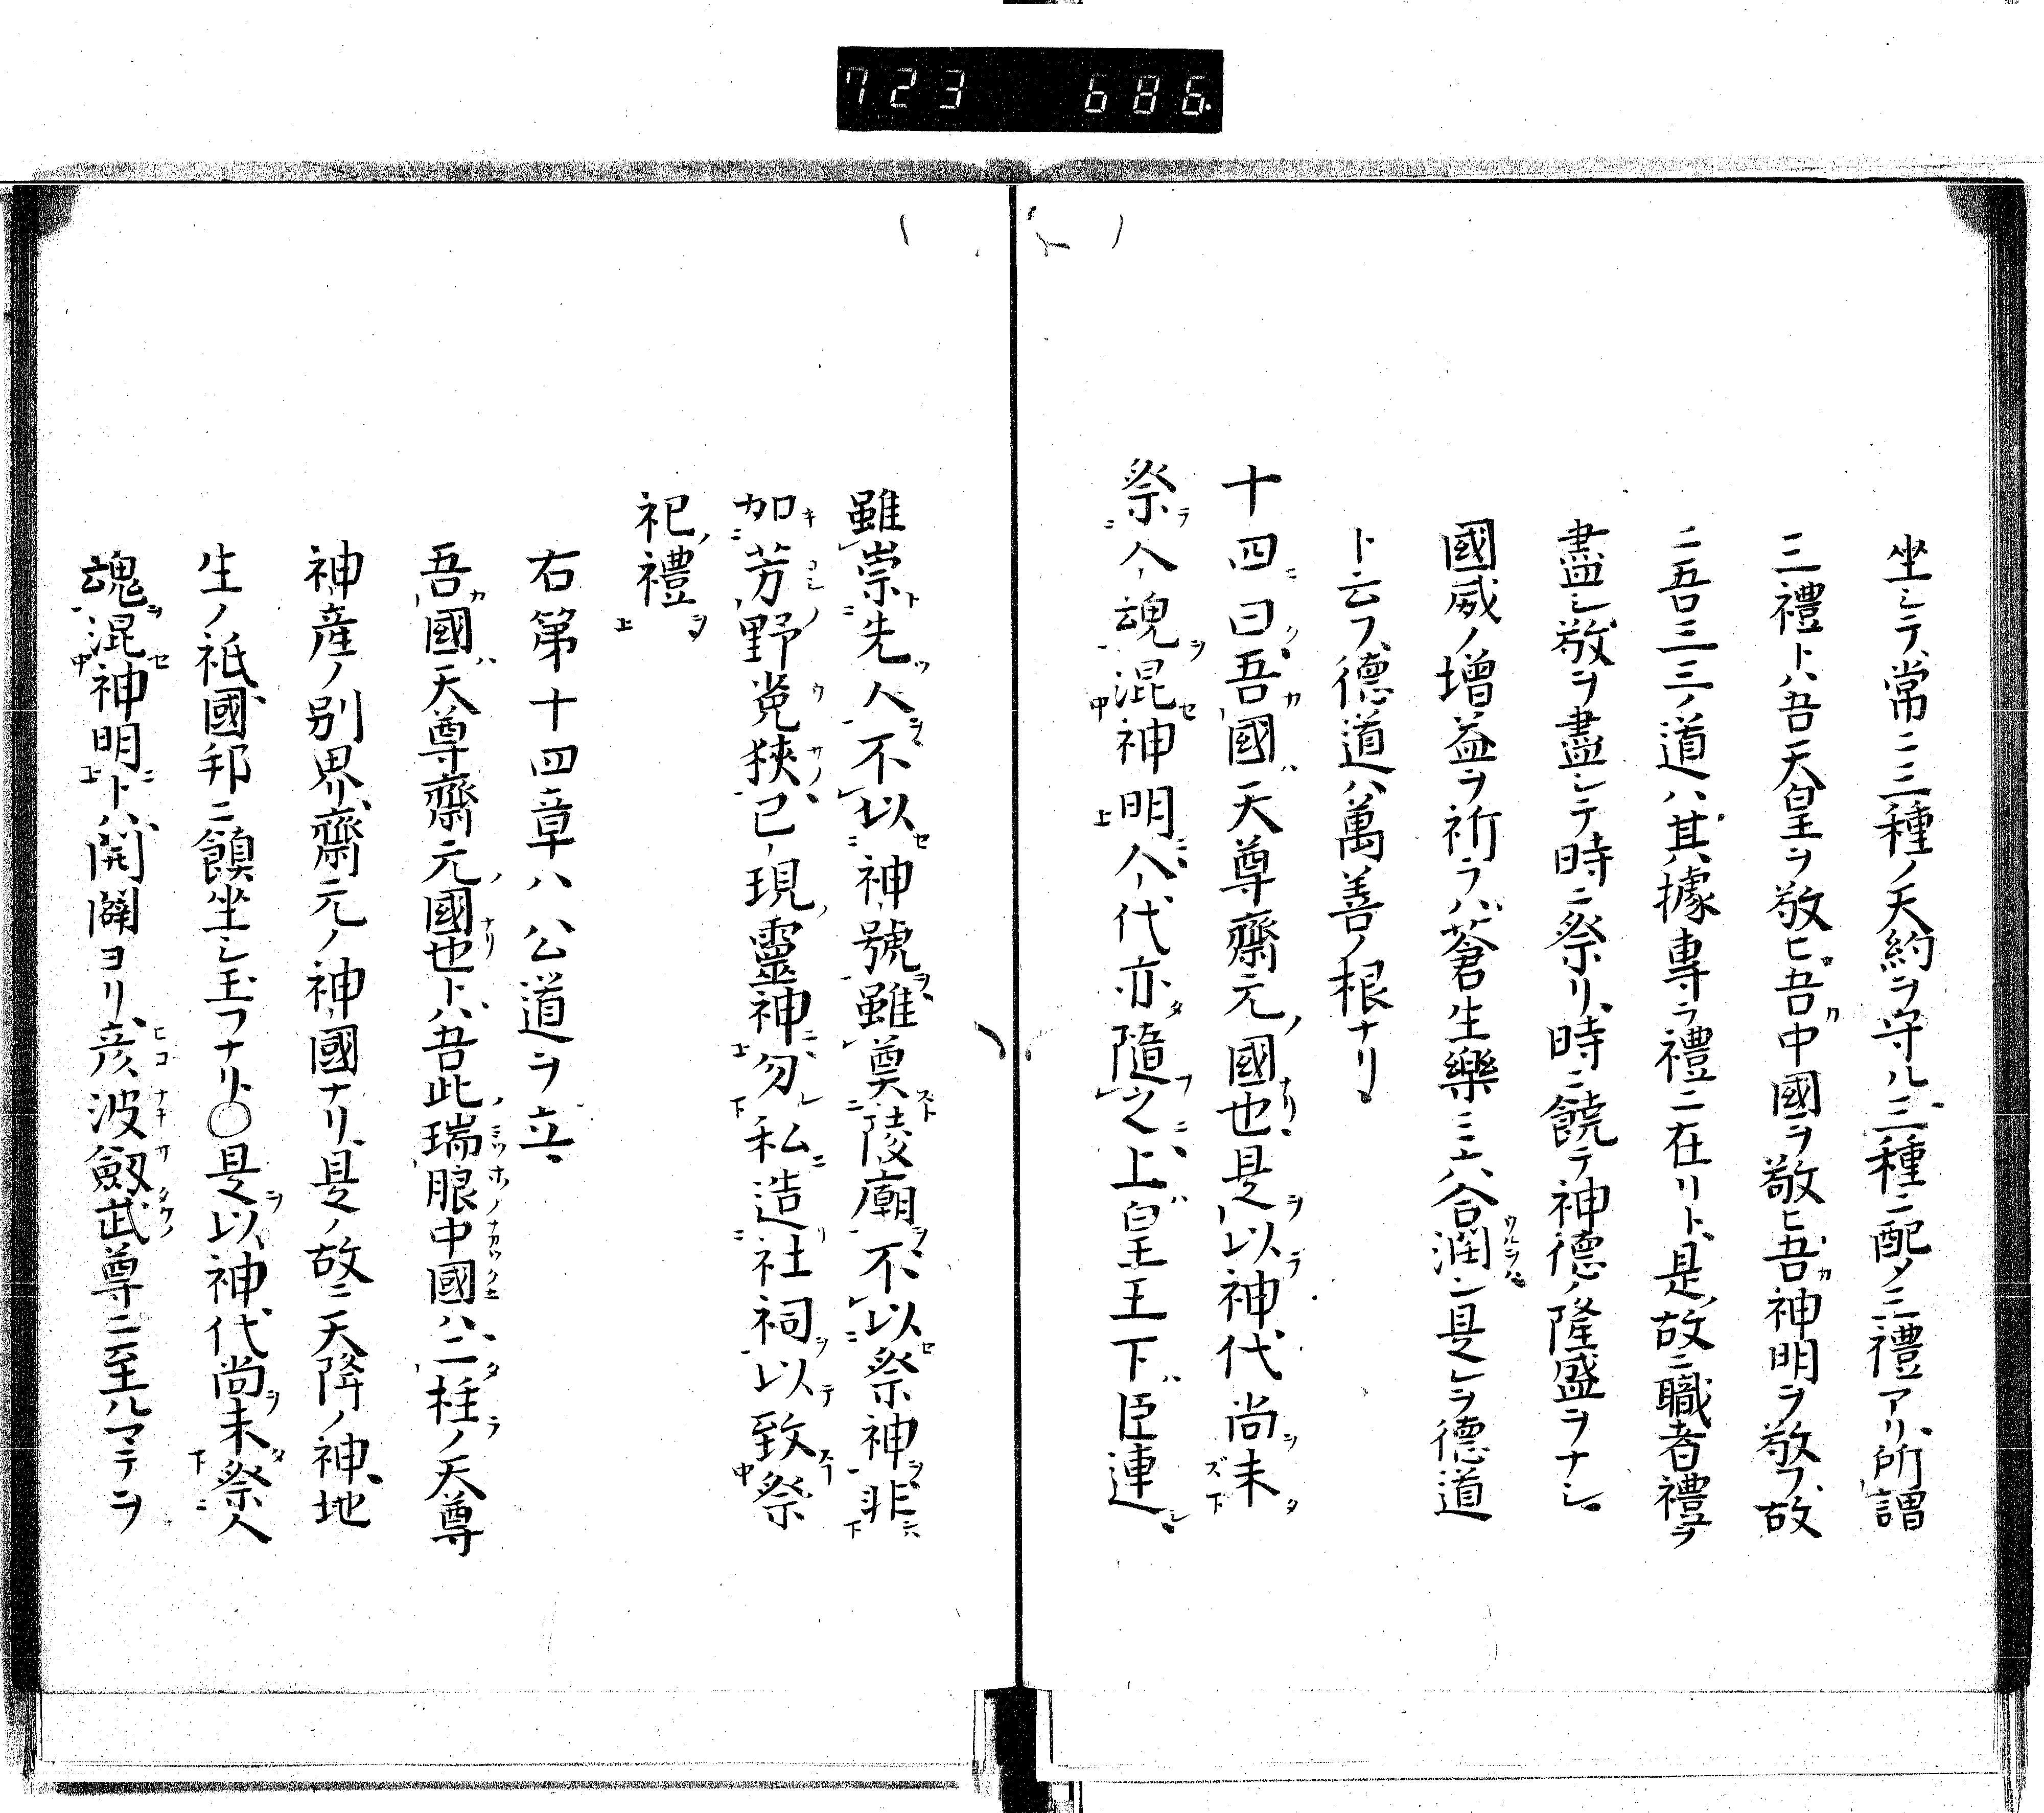 723 686.
坐シテ、常ニ三種ノ天約ヲ守ル、三種ニ配ノ三禮アリ、所謂
三禮トハ吾天皇ヲ敬ヒ吾カ中國ヲ敬ヒ吾カ神明ヲ敬フ、故
ニ吾三三ノ道ハ其據專ラ禮ニ在リト、是故ニ職者禮ヲ
盡シ敬ヲ盡シテ時ニ祭リ、時ニ饒テ神德ノ隆盛ヲナシ
國威ノ增益ヲ祈ラハ、蒼生樂ミニ合潤ン是レヲ德道
ト云フ、德道ハ萬善ノ根ナリ
十四ニ曰ク吾カ國ハ天尊齋元ノ國也是ヲ以テ神代尚ヲ未タ
祭ラ人魂ヲ混セ神明ニ、人代亦タ隨フ之ニ、上ハ皇王下ハ臣連シ
雖崇ト先ツ人ヲ不以セ神號ヲ、雖奠スト陵廟ヲ、不以セ祭神ヲ、非ス
加キ芳野ノ菟狹サノ已、現靈神ニ、勿レ私ニ造リ社祠ヲ以テ致ス祭
祀ノ禮ヲ
右第十四章ハ公道ヲ立、
吾カ國ハ天尊齋元ノ國也ナリトハ、吾此ノ瑞腺中國ハ、二柱ノ天尊
神產ノ別界、齋元ノ神國ナリ、是ノ故ニ天降ノ神、地
生ノ祇、國邦ニ饙坐シ玉フナリト〇是ヲ以、神代尚ヲ未タ祭人
魂ヲ混セ神明ニトハ、開闢ヨリ、彦波劔武尊ニ至ルマテヲ